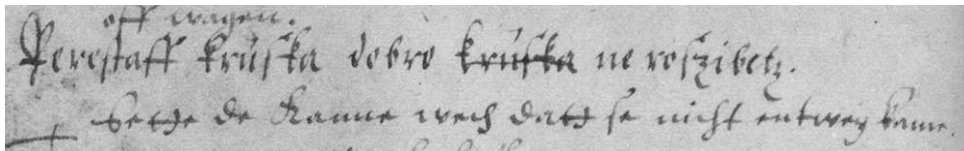 off wagen.
Perestaff kruska dobro kruska ne roszibetz.
Sette de Kanne wech datt se nicht entwey kame.